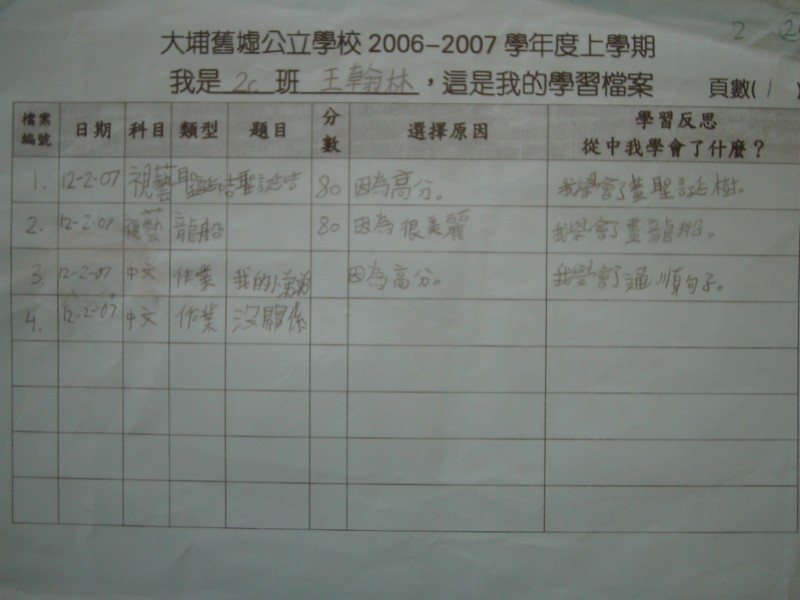 2
大埔舊墟公立學校 2006-2007 學年度上學期
我是 2c 班 王翰林，這是我的學習檔案 頁數( 1 )
檔案編號 日期 科目 類型 題目 分數 選擇原因 學習反思 從中我學會了什麼？
1. 12-2-07 視藝 聖誕咭 聖誕咭 80 因為高分。 我學會了畫聖誕樹。
2. 12-2-07 視藝 龍船 80 因為很美麗 我學會了畫龍船。
3. 12-2-07 中文 作業 我的 因為高分。 我學會了通順句子。
4. 12-2-07 中文 作業 沒關係